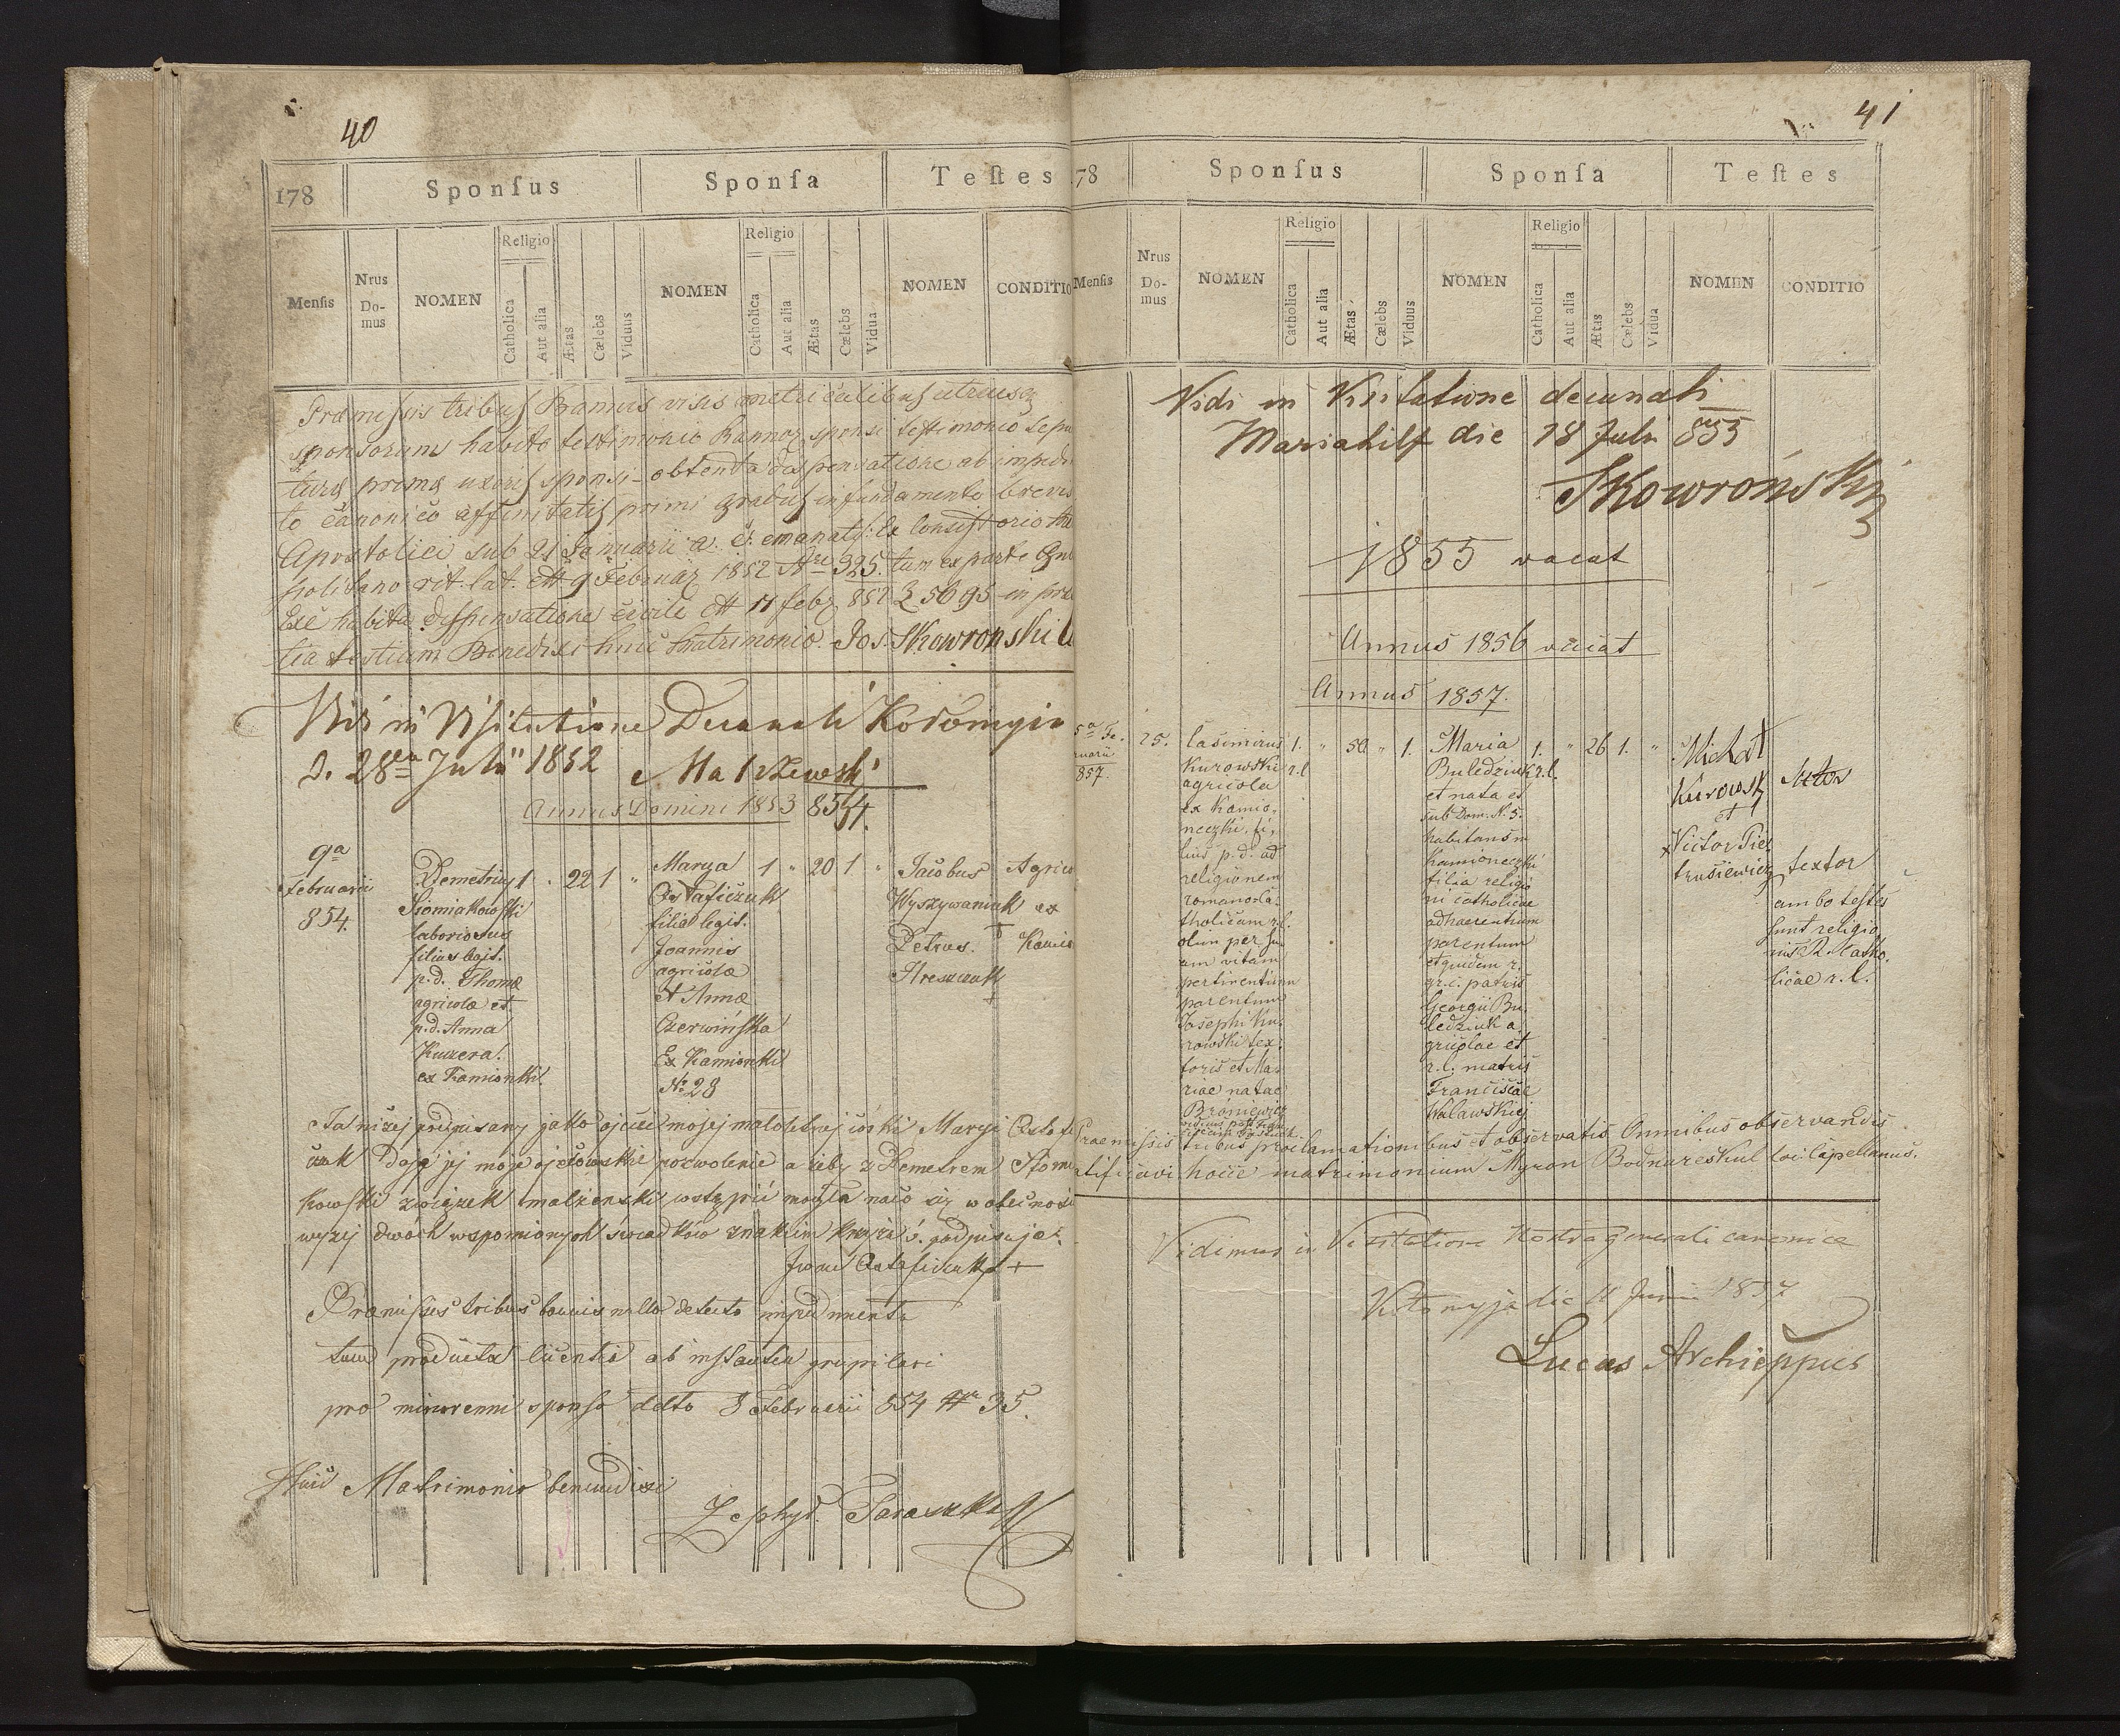 40
178
Sponſus
Sponſa
Teſtes
Menſis
Nrus Do-mus
NOMEN
Religio
Catholica
Aut alia
Ætas
Cælebs
Viduus
NOMEN
Religio
Catholica
Aut alia
Ætas
Cælebs
Vidua
NOMEN
CONDITIO
Præmissis tribus Bannis visis metricalibus utriusq
sponsorum habito testimonio Bannor. sponsi testimonio sepul
turæ primæ uxoris sponsi obtenta dispensatione ab impedi
to canonico affinitatis primi gradus in fundamento brevis
Apostolici sub 21 Januarii a. c. emanati ex Consistorio
politano rit. lat. dtt 9 Februar 1852 Nro 325. tum ex parte
habita dispensatione civili dtt 17 feb 852 Z 5695 in præ
tia testium Benedixi huic Matrimonio. Jos. Skowronski
Vidi in Visitatione Decanali Kołomyia
d. 28va Julii 1852
Annus Domini 1853 854.
9a
Februarii
854.
Demetrius
Siomiakowski
laboriosus
filius legit.
p.d. Thomæ
agricolæ et
p.d. Anna
Kuzera.
ex Kamionki
1
"
22
1
"
Marya
Ostaficzuk
filia legit.
Joannis
agricolæ
et Annæ
Czerwińska
Ex Kamionki
No 28
1
"
20
1
"
Jacobus
Wyszywaniuk
†
Petrus
Hreszczuk
†
Agrico
ex
Kamio
Ja niżej podpisany jako ojciec mojej małoletniej córki Maryi Ostafi
czuk daję jej moje ojcowskie pozwolenie a żeby z Demetrem Siomia
kowski związek małżeński wstąpić mogła na co się w obecności
wyżej dwóch wspomionych świadków znakiem krzyża ś. podpisuję.
Iwan Ostafiiczuk +
Præmissis tribus bannis nullo detecto impedimento
tum producta licentia ab instantia pupilari
pro minorenni sponso ddto 8 Februarii 854 Nro 35.
Huic Matrimonio benedixi
Zephyr. Paraszka
41
78
Sponſus
Sponſa
Teſtes
Menſis
Nrus Do-mus
NOMEN
Religio
Catholica
Aut alia
Ætas
Cælebs
Viduus
NOMEN
Religio
Catholica
Aut alia
Ætas
Cælebs
Vidua
NOMEN
CONDITIO
Vidi in Visitatione decanali
Mariahilf die 18 Juli 855
Skowroński
1855 vacat
Annus 1856 vacat
Annus 1857.
5a Fe.
ruarii
857.
25.
Casimirus
Kurowski
agricola
ex Kamio.
neczki, fi,
lius p. d. ad
religionem
romano Ca.
tholicam r.l.
olim per su
am vitam
pertinentium
parentum
Josephi Ku.
rowski tex.
toris et Ma.
riae natae
Broniewicz
1.
r.l
"
50
"
1.
Maria
Buledziuk
et nata et
sub Dom. N. 5.
habitans in
Kamioneczki
filia religio
ni catholicae
adhaerentium
parentum
et quidem r.
gr. c. patris
Georgii Bu.
ledziuk a.
gricolae et
r.l. matris
Franciscae
Walawskiej
1.
r.l.
"
26
1.
"
Michał
Kurowski
et
x Victor Pie
trusiewicz
textor
ambo testes
sunt religio
nis R. Catho.
licae r. l.
Praemissis tribus proclamationibus et observatis Omnibus observandis
ratificavi hocce matrimonium Myron Bodnareskul loci Capellanus.
Vidimus in Visitatione Nostra generali canonica
Kołomyja die 11 Junii 1857
Lucas Archieppus